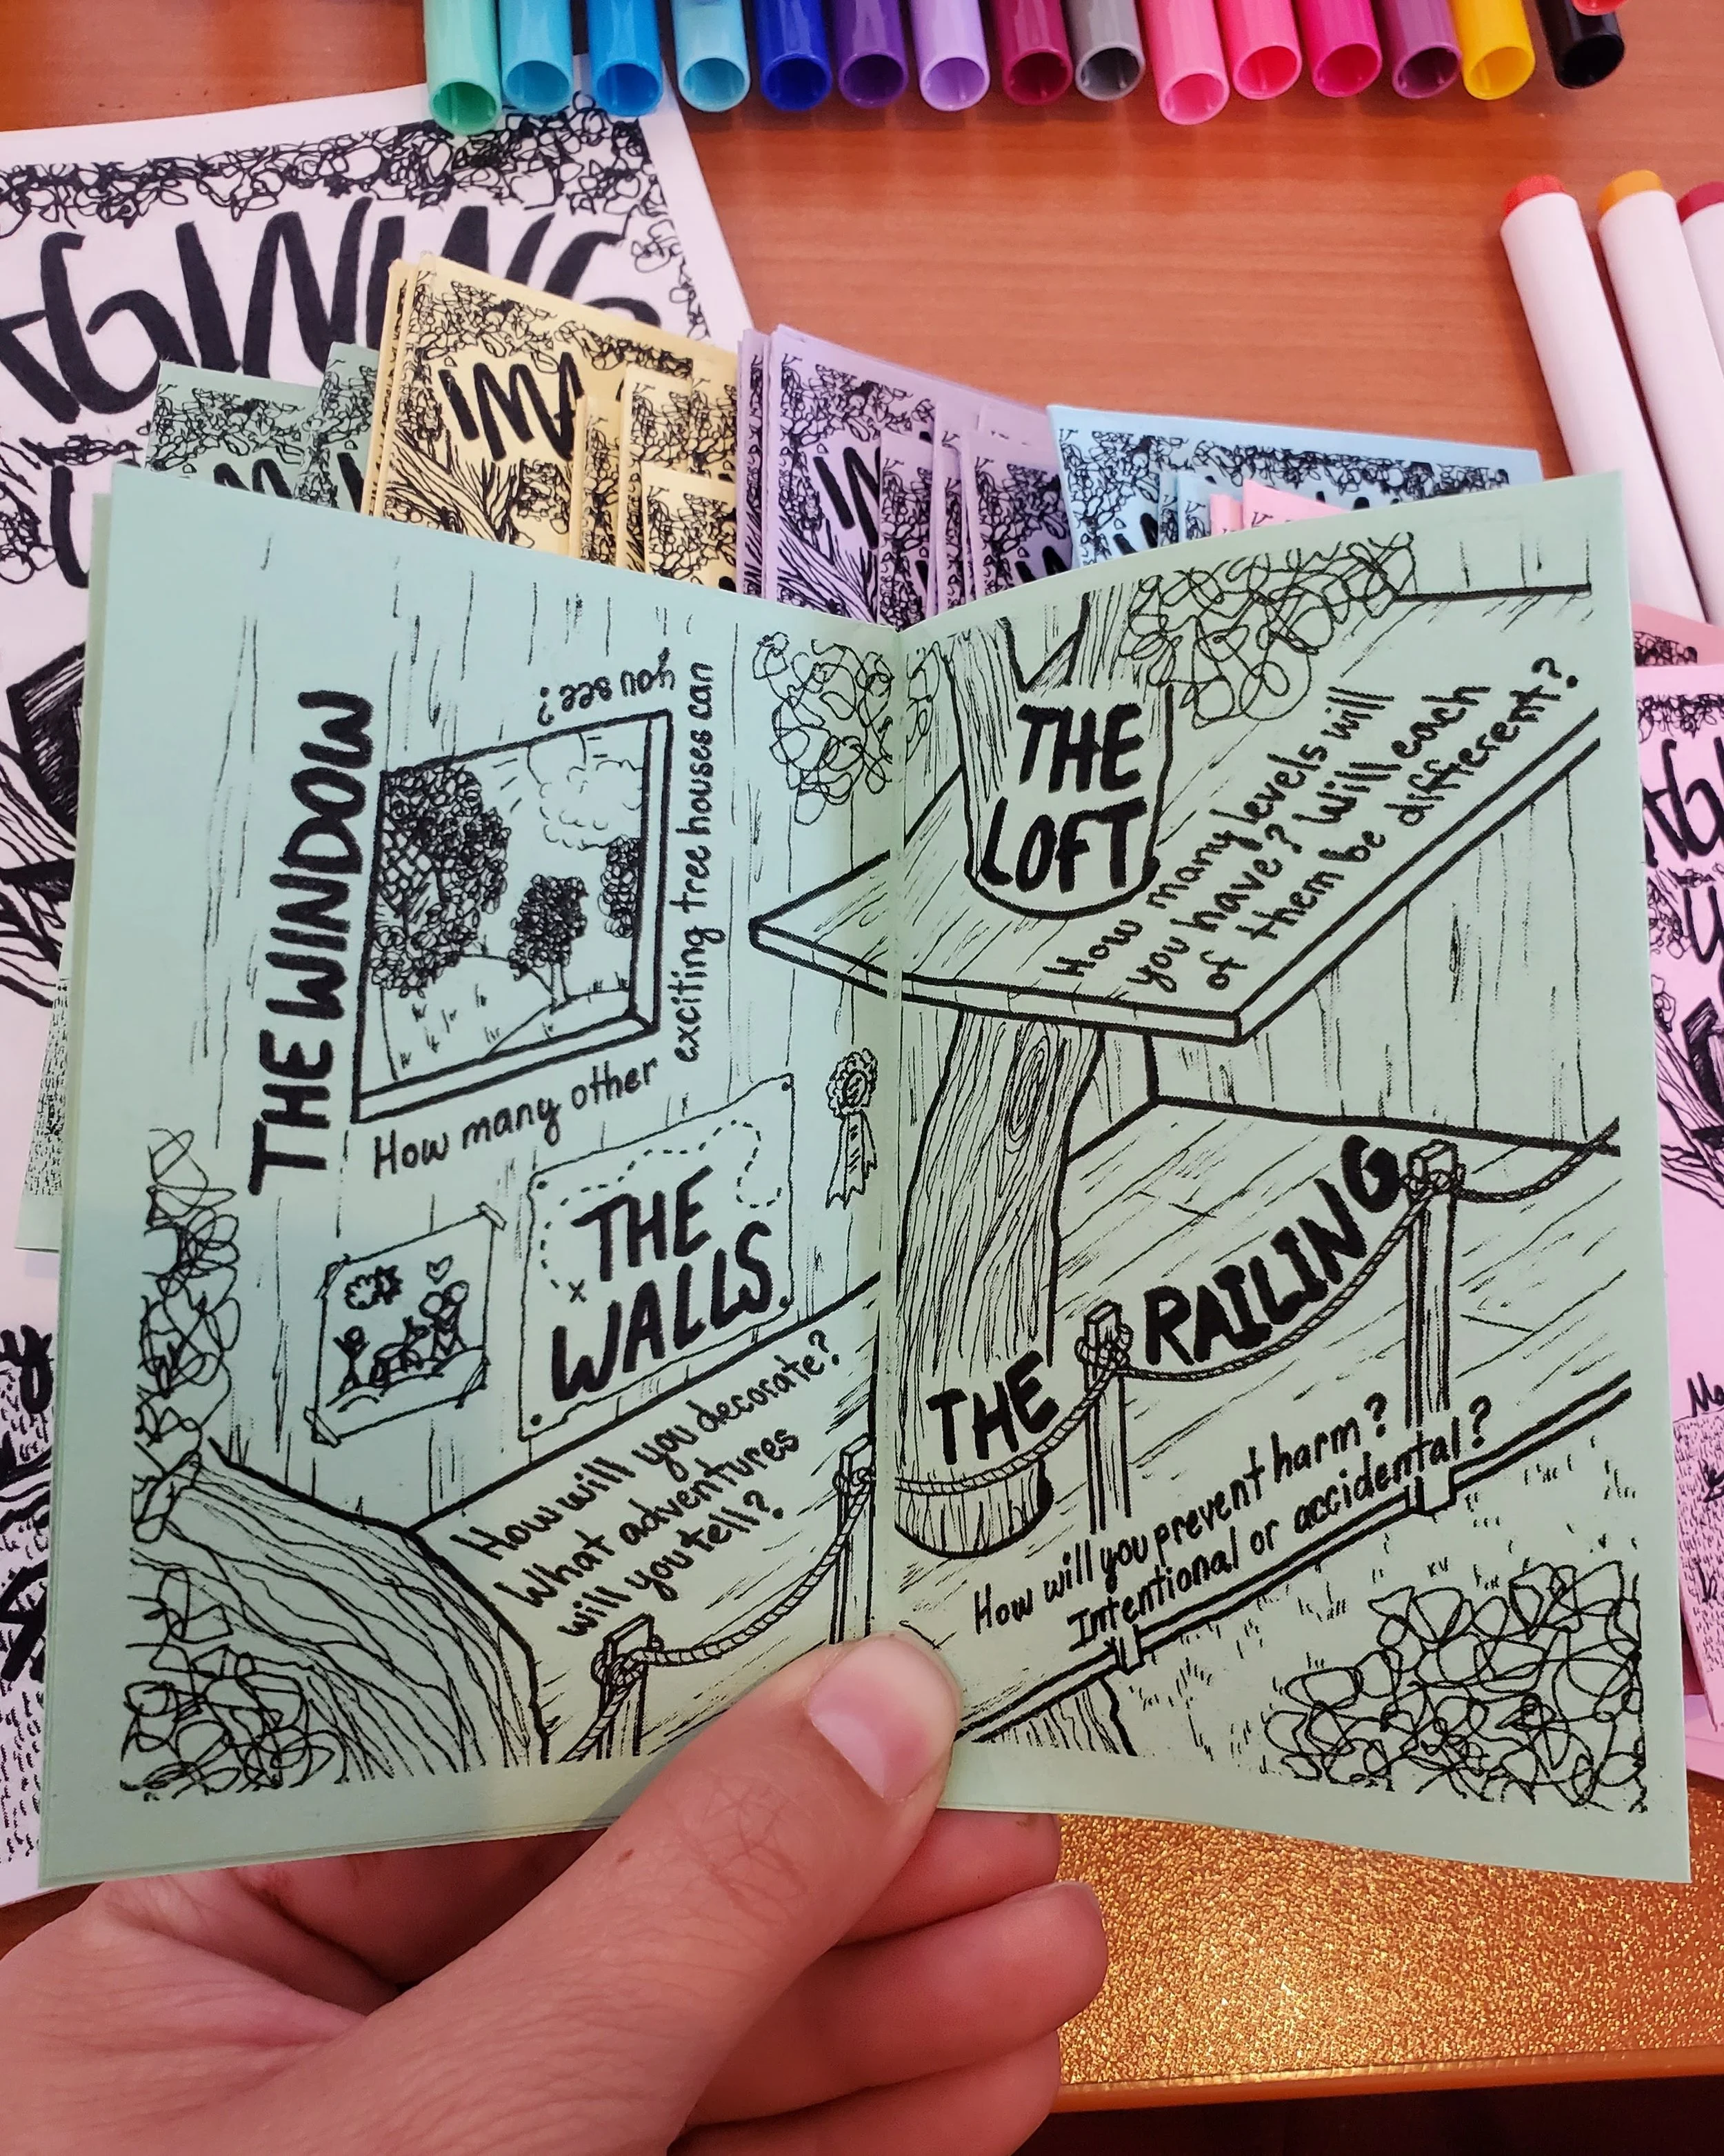 AGINING
IMA
IM
THE WINDOW
How many other
exciting tree houses can
you see?
THE
WALLS
How will you decorate?
What adventures
will you tell?
THE
LOFT
How many levels will
you have? Will each
of them be different?
THE RAILING
How will you prevent harm?
Intentional or accidental?